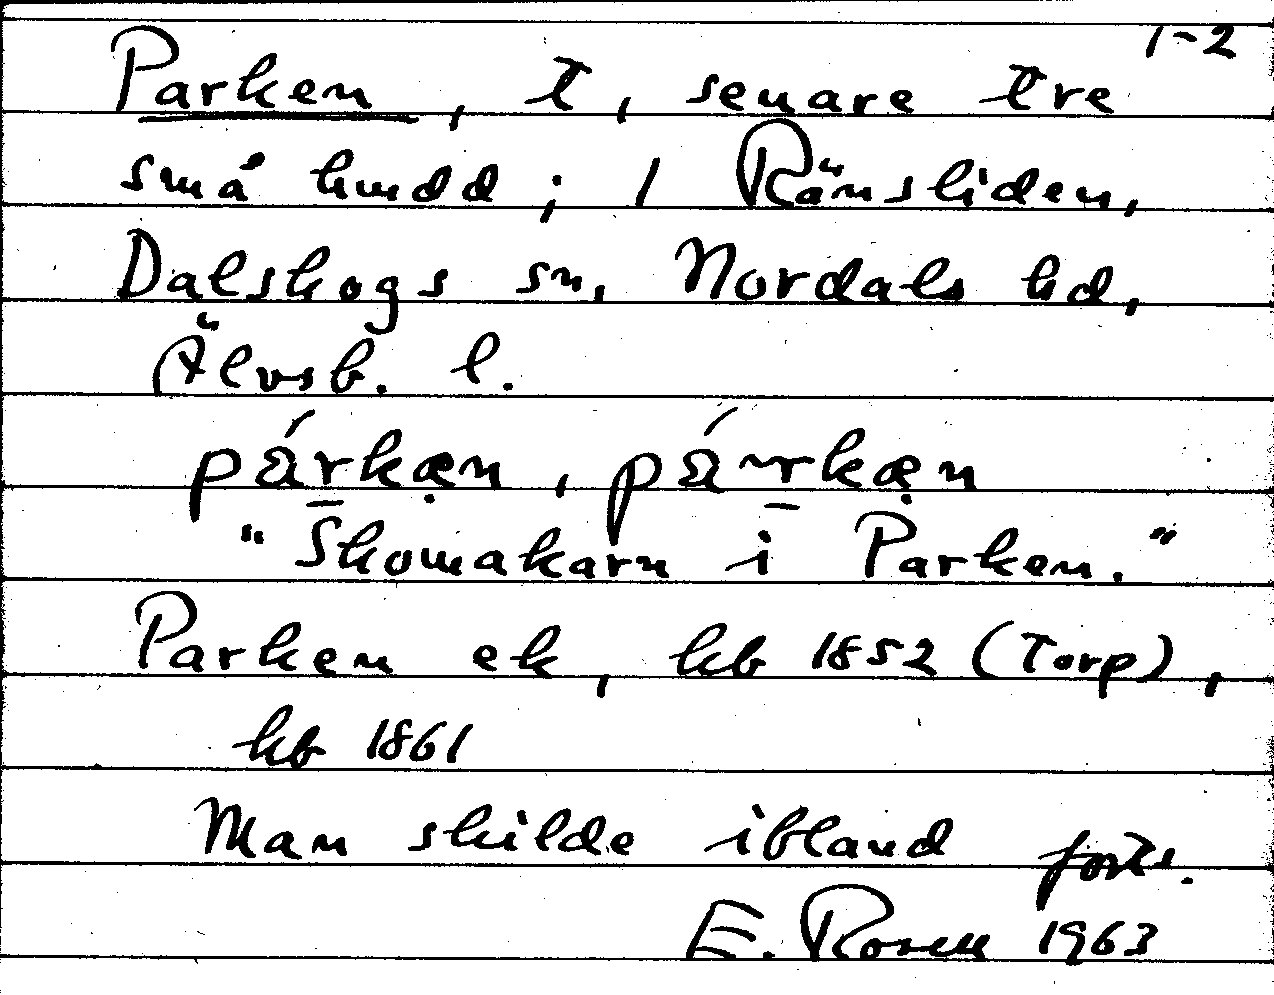 1-2
Parken, t, senare tre
små hmdd; 1 Rämsliden,
Dalskogs sn, Nordals hd,
Älvsb. l.
párkæ̣n, párkæ̣n
"Skomakarn i Parken."
Parken ek, kb 1852 (Torp),
kb 1861
Man skilde ibland forts.
E. Rosell 1963